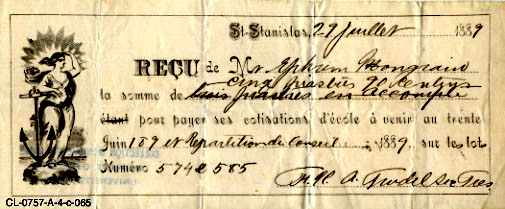 St-Stanislas, 29 Juillet 1889
REÇU de Mr Ephrem Mongrain
cinq piastres
la somme de trois piastres en accompte
étant pour payer ses cotisations d'école à venir au trente
Juin 189 et Repartition de Conseil 1889, sur le lot
Numéro 574 585
A. Trudel Sec Tres
CL-0757-A-4-c-065